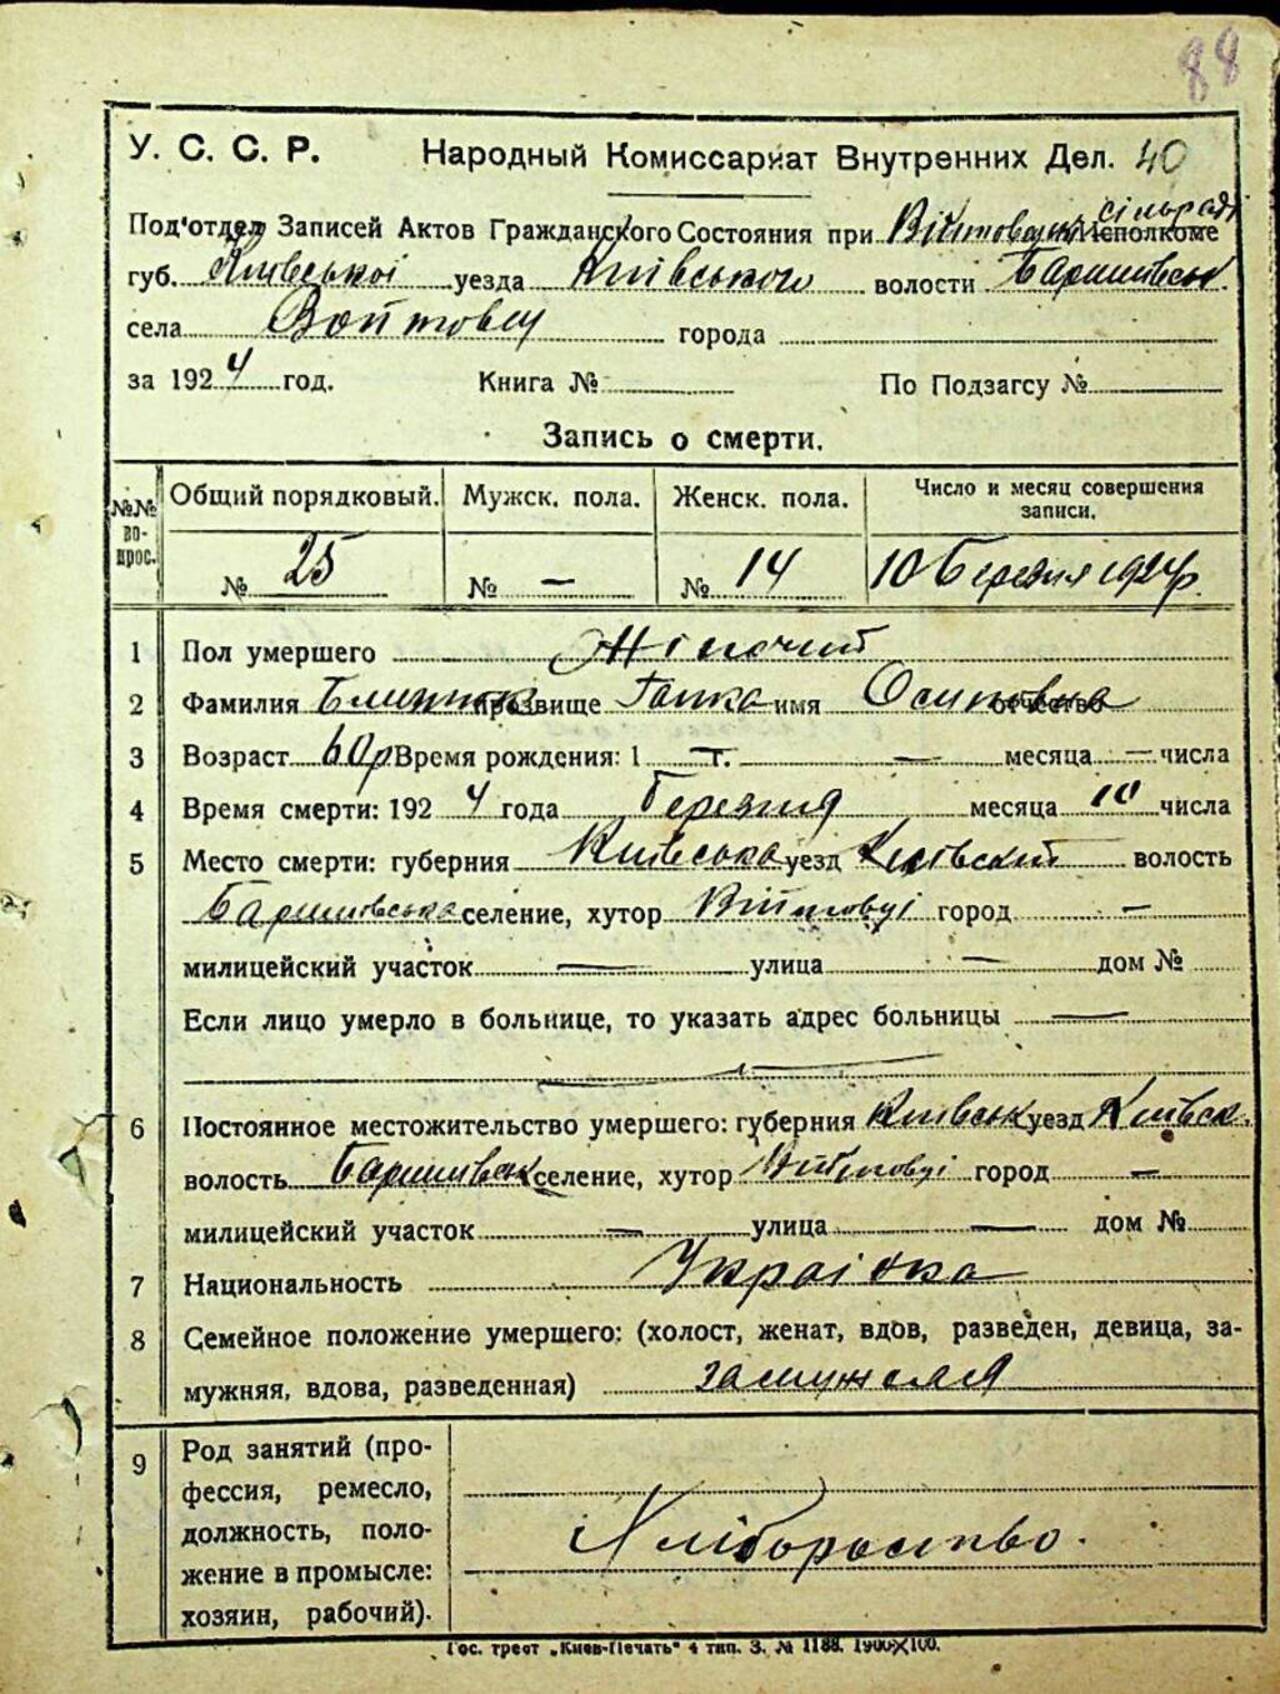 88
У. С. С. Р. Народный Комиссариат Внутренних Дел. 40
сільраді
Под'отдел Записей Актов Гражданского Состояния при Війтовецьк Исполкоме
губ. Київської уезда Київського волости Баришівськ.
села Войтовец города
за 1924 год. Книга № По Подзагсу №
Запись о смерти.
№№ вопрос. Общий порядковый. Мужск. пола. Женск. пола. Число и месяц совершения записи.
№ 25 № — № 14 10 Березня 1924 р.
1 Пол умершего Жіночий
2 Фамилия прозвище Гапка имя Осиповна отчество
3 Возраст 60 р Время рождения: 1 — г. — месяца — числа
4 Время смерти: 1924 года Березня месяца 10 числа
5 Место смерти: губерния Київська уезд Київский волость
Баришівська селение, хутор Війтовці город —
милицейский участок — улица — дом №
Если лицо умерло в больнице, то указать адрес больницы —
6 Постоянное местожительство умершего: губерния Київськ уезд Київськ.
волость Баришівськ селение, хутор Війтовці город —
милицейский участок — улица — дом №
7 Национальность Українка
8 Семейное положение умершего: (холост, женат, вдов, разведен, девица, за-
мужняя, вдова, разведенная) замужняя
9 Род занятий (про-
фессия, ремесло,
должность, поло-
жение в промысле:
хозяин, рабочий).
Хліборобство.
Гос. трест „Киев-Печать" 4 тип. З. № 1188. 1900×100.